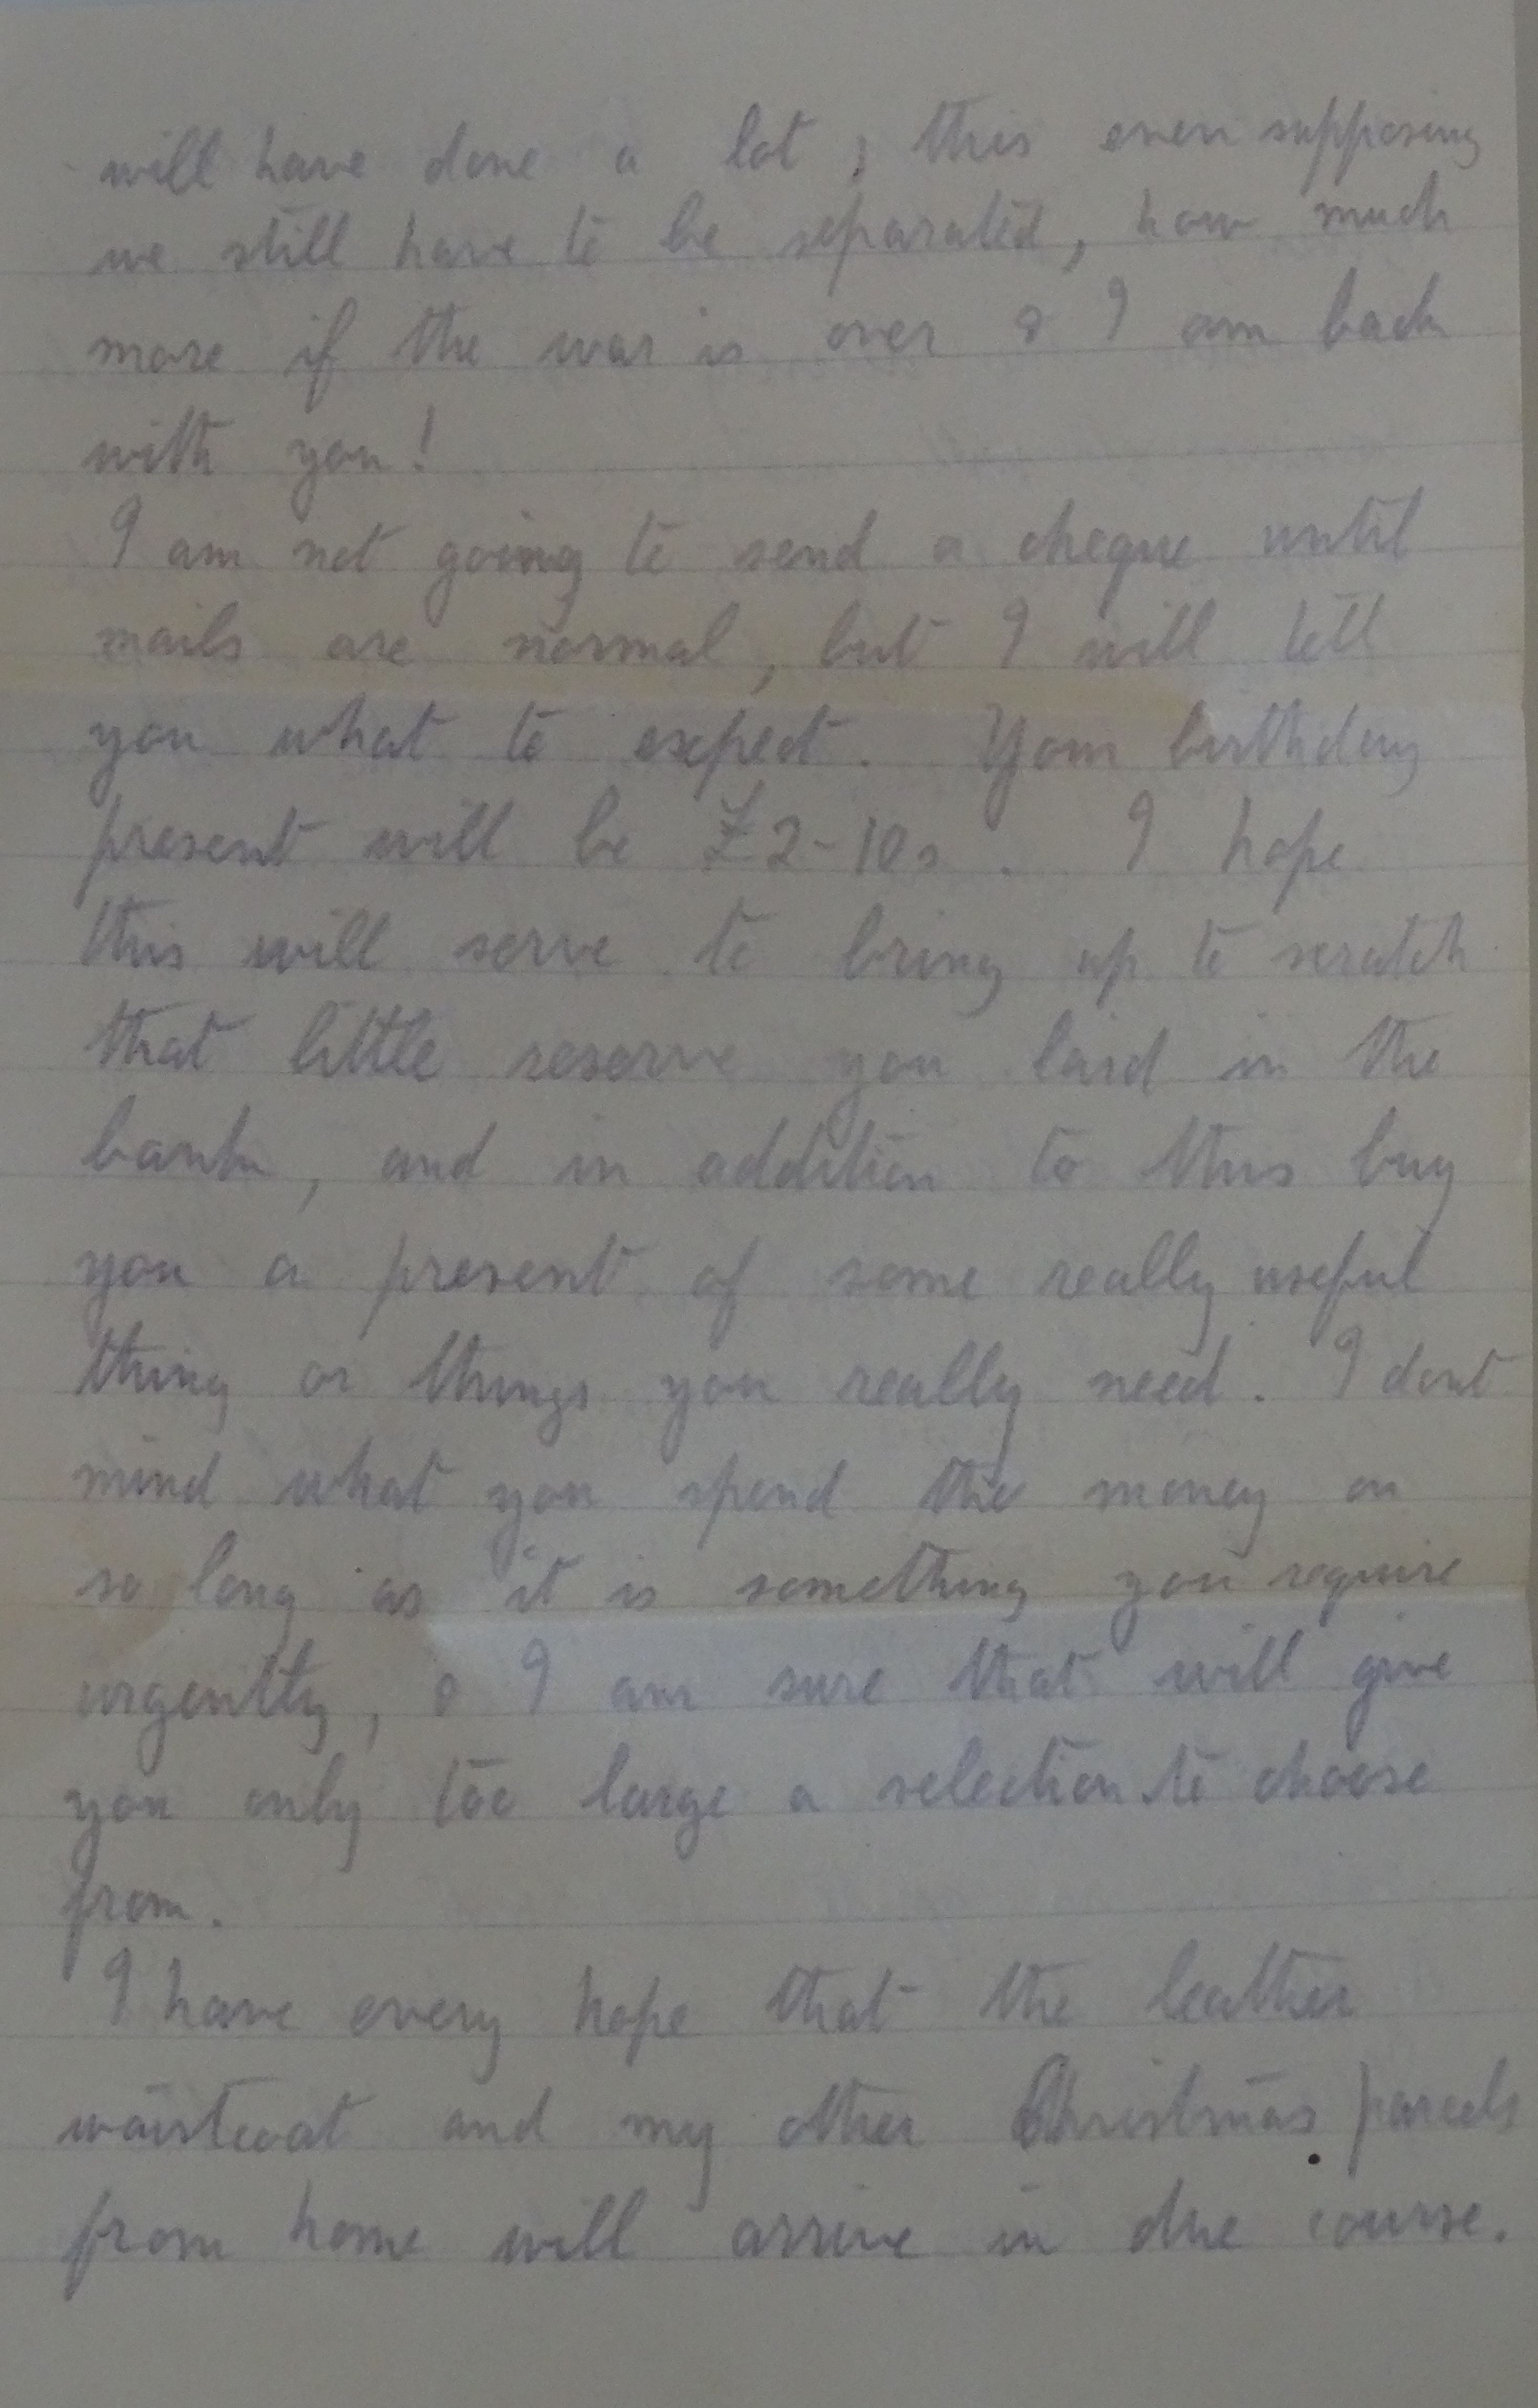 will have done a lot, this even supposing
we still have to be separated, how much
more if the war is over & I am back
with you!
I am not going to send a cheque until
mails are normal, but I will tell
you what to expect. Your birthday
present will be £2-10s. I hope
this will serve to bring up to scratch
that little reserve you laid in the
bank, and in addition to this buy
you a present of some really useful
thing or things you really need. I dont
mind what you spend the money on
so long as it is something you require
urgently, & I am sure that will give
you only too large a selection to choose
from.
I have every hope that the leather
waistcoat and my other Christmas parcels
from home will arrive in due course.